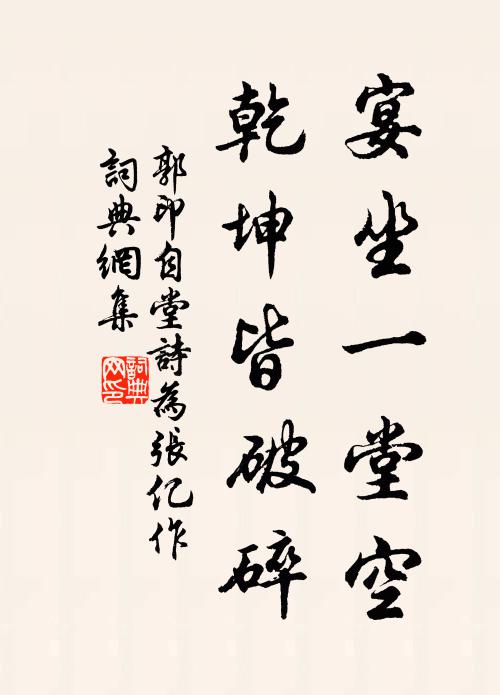 宴坐一堂空
乾坤皆破碎
郭印自堂詩為張仡作
詞典網集
詞典網印